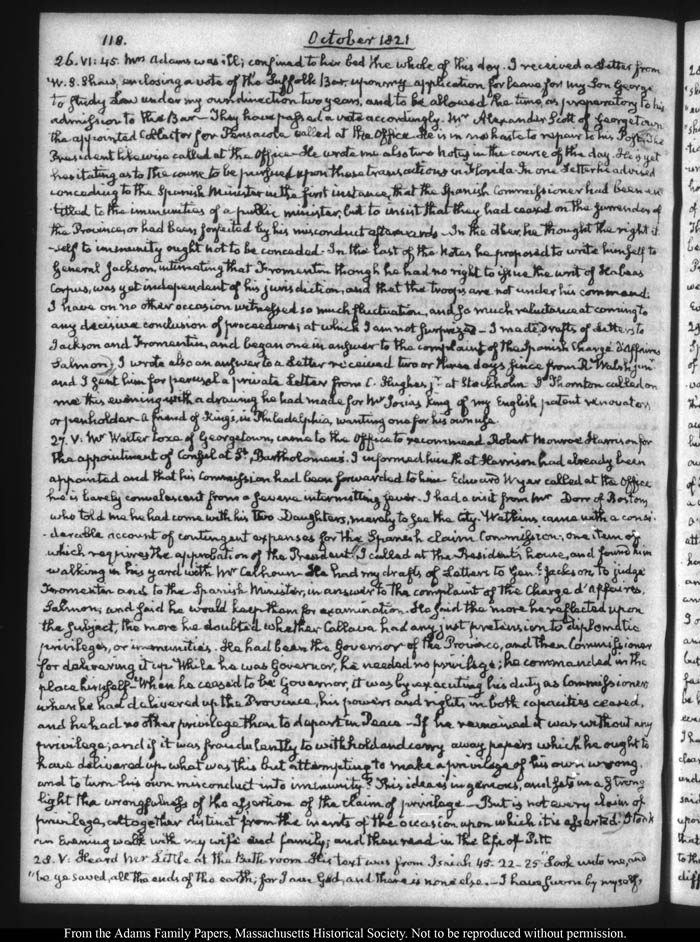 118. October 1821
26. VI: 45. Mrs Adams was ill; confined to her bed the whole of this day. I received a Letter from
W. S. Shaw, enclosing a vote of the Suffolk Bar, upon my application for leave for my Son George
to study Law under my own direction two years, and to be allowed the time as preparatory to his
admission to the Bar — They have passed a vote accordingly. Mr Alexander Scott of Georgetown
the appointed Collector for Pensacola called at the Office. He is in no haste to repair to his Post. The
President likewise called at the Office. He wrote me also two Notes in the course of the day. He is yet
hesitating as to the course to be pursued upon these transactions in Florida. In one Letter he advised
conceding to the Spanish Minister in the first instance, that the Spanish Commissioner had been en-
-titled to the immunities of a public minister, but to insist that they had ceased on the surrender of
the Province, or had been forfeited by his misconduct afterwards. In the other he thought the right it-
-self to immunity ought not to be conceded. In the last of the Notes he proposed to write himself to
General Jackson, intimating that Fromentin though he had no right to issue the writ of Habeas
Corpus, was yet independent of his jurisdiction, and that the troops are not under his command.
I have on no other occasion witnessed so much fluctuation, and so much reluctance at coming to
any decisive conclusion of proceedure; at which I am not surprized — I made drafts of Letters to
Jackson and Fromentin, and began one in answer to the complaint of the Spanish Chargé d'Affaires
Salmon; I wrote also an answer to a Letter received two or three days since from R. Walsh junr
and I sent him for perusal a private Letter from C. Hughes jr. at Stockholm. Dr Thornton called on
me this evening with a drawing he had made for Mr Josias King of my English patent renovator,
or penholder. A friend of King's, in Philadelphia, wanting one for his own use.
27. V: Mr Walter Loxe of Georgetown, came to the Office to recommend Robert Monroe Harrison for
the appointment of Consul at St. Bartholomew's. I informed him that Harrison had already been
appointed and that his commission had been forwarded to him. Edward Wyer called at the Office
he is barely convalescent from a severe intermitting fever. I had a visit from Mr Dorr of Boston,
who told me he had come with his two Daughters, merely to see the City. Watkins, came with a consi-
-derable account of contingent expenses for the Spanish claim Commission; one item of
which requires the approbation of the President. I called at the President's house, and found him
walking in his yard with Mr Calhoun. He had my drafts of Letters to Genl. Jackson, to judge
Fromentin and to the Spanish Minister, in answer to the complaint of the Chargé d'Affaires,
Salmon; and said he would keep them for examination. He said the more he reflected upon
the subject, the more he doubted whether Callava had any just pretension to diplomatic
privileges, or immunities. He had been the Governor of the Province, and then Commissioner
for delivering it up. While he was Governor, he needed no privilege; he commanded in the
place himself. When he ceased to be Governor, it was by executing his duty as Commissioner
when he had delivered up the Province, his powers and rights, in both capacities ceased,
and he had no other privilege than to depart in Peace — If he remained it was without any
privilege; and if it was fraudulently to withhold and carry away papers which he ought to
have delivered up, what was this but attempting to make a privilege of his own wrong,
and to turn his own misconduct into immunity? This idea is ingenious, and sets in a strong
light the wrongfulness of the assertion of the claim of privilege — But is not every claim of
privilege, altogether distinct from the merits of the occasion upon which it is asserted. I took
an Evening walk with my wife and family; and then read in the life of Pitt
28. V: Heard Mr Little at the Bath room. His text was from Isaiah 45. 22-25 "Look unto me, and
"be ye saved, all the ends of the earth; for I am God, and there is none else.— I have sworn by myself,
From the Adams Family Papers, Massachusetts Historical Society. Not to be reproduced without permission.